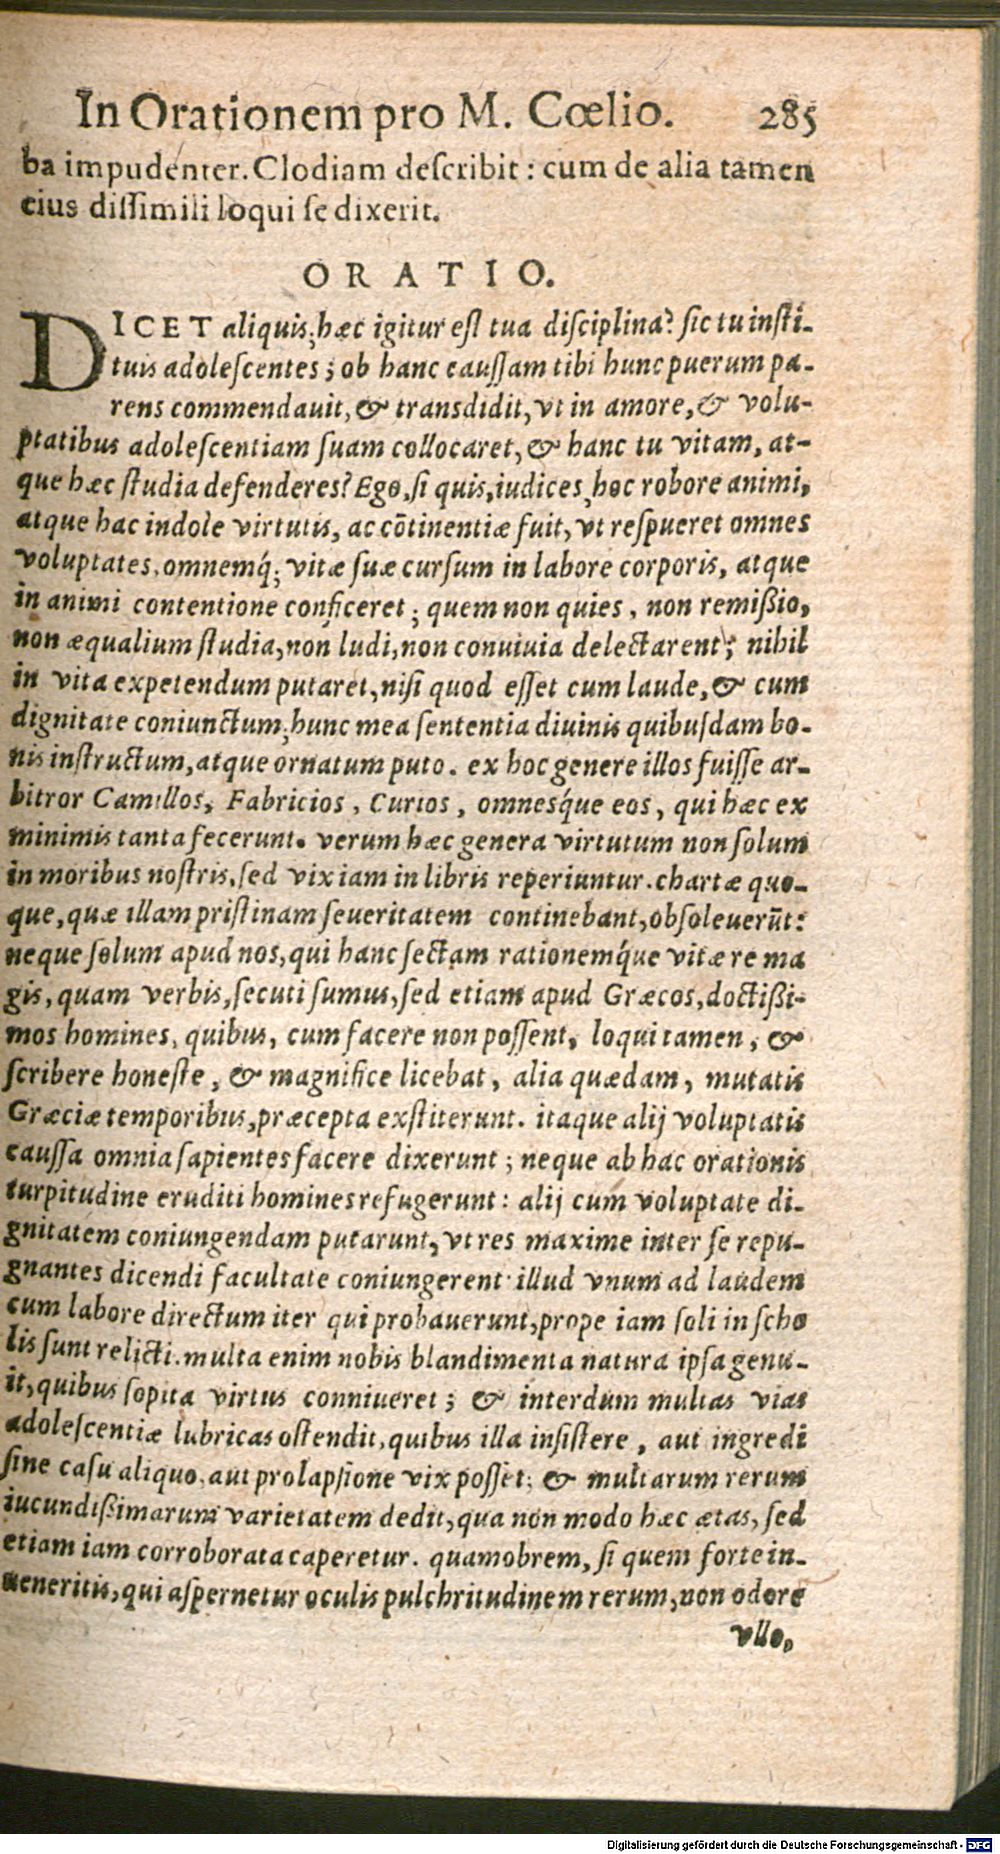 In Orationem pro M. Cœlio. 285
ba impudenter. Clodiam describit: cum de alia tamen
eius dissimili loqui se dixerit.
ORATIO.
DICET aliquis; hæc igitur est tua disciplina? sic tu insti-
tuis adolescentes; ob hanc caussam tibi hunc puerum pa-
rens commendauit, & transdidit, vt in amore, & volu-
ptatibus adolescentiam suam collocaret, & hanc tu vitam, at-
que hæc studia defenderes? Ego, si quis, iudices, hoc robore animi,
atque hac indole virtutis, ac cōtinentiæ fuit, vt respueret omnes
voluptates, omnemq́; vitæ suæ cursum in labore corporis, atque
in animi contentione conficeret; quem non quies, non remißio,
non æqualium studia, non ludi, non conuiuia delectarent; nihil
in vita expetendum putaret, nisi quod esset cum laude, & cum
dignitate coniunctum; hunc mea sententia diuinis quibusdam bo-
nis instructum, atque ornatum puto. ex hoc genere illos fuisse ar-
bitror Camillos, Fabricios, Curios, omnesq́ue eos, qui hæc ex
minimis tanta fecerunt. verum hæc genera virtutum non solum
in moribus nostris, sed vix iam in libris reperiuntur. chartæ quo-
que, quæ illam pristinam seueritatem continebant, obsoleuerūt:
neque solum apud nos, qui hanc sectam rationemq́ue vitæ re ma
gis, quam verbis, secuti sumus, sed etiam apud Græcos, doctißi-
mos homines, quibus, cum facere non possent, loqui tamen, &
scribere honeste, & magnifice licebat, alia quædam, mutatis
Græciæ temporibus, præcepta exstiterunt. itaque alij voluptatis
caussa omnia sapientes facere dixerunt; neque ab hac orationis
turpitudine eruditi homines refugerunt: alij cum voluptate di-
gnitatem coniungendam putarunt, vt res maxime inter se repu-
gnantes dicendi facultate coniungerent. illud vnum ad laudem
cum labore directum iter qui probauerunt, prope iam soli in scho
lis sunt relicti. multa enim nobis blandimenta natura ipsa genu-
it, quibus sopita virtus conniueret; & interdum multas vias
adolescentiæ lubricas ostendit, quibus illa insistere, aut ingredi
sine casu aliquo, aut prolapsione vix posset; & multarum rerum
iucundißimarum varietatem dedit, qua non modo hæc ætas, sed
etiam iam corroborata caperetur. quamobrem, si quem forte in-
ueneritis, qui aspernetur oculis pulchritudinem rerum, non odore
vllo,
Digitalisierung gefördert durch die Deutsche Forschungsgemeinschaft - DFG